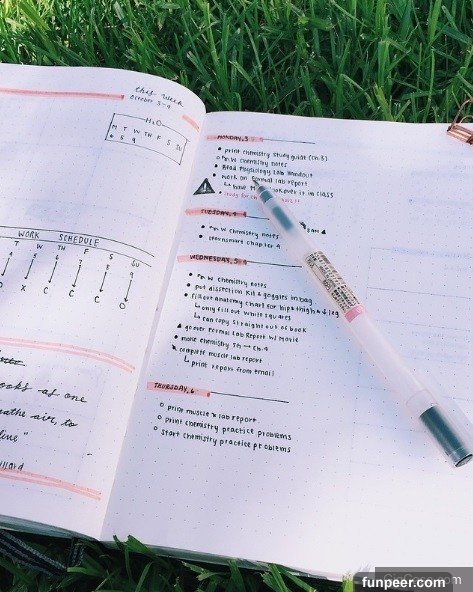 this week
October 3-9
H2O
M T W TH F S SU
4 5 9
WORK SCHEDULE
T W TH F S SU
4 5 6 7 8 9
O X C C C O
ooks as one
eathe air, to
live"
MONDAY, 3
print chemistry study guide (ch. 3)
chemistry notes
Read Physiology Lab Handout
work on formal lab report
have look over it in class
study for
TUESDAY, 4
chemistry notes
chapter 4
WEDNESDAY, 5
chemistry notes
put dissection kit & goggles in bag
fill out anatomy chart for hip & thigh & leg
only fill out white squares
can copy straight out of book
go over Formal Lab Report w/
make chemistry Ch. 4
complete muscle lab report
print report from email
THURSDAY, 6
print muscle lab report
print chemistry practice problems
start chemistry practice problems
funpeer.com